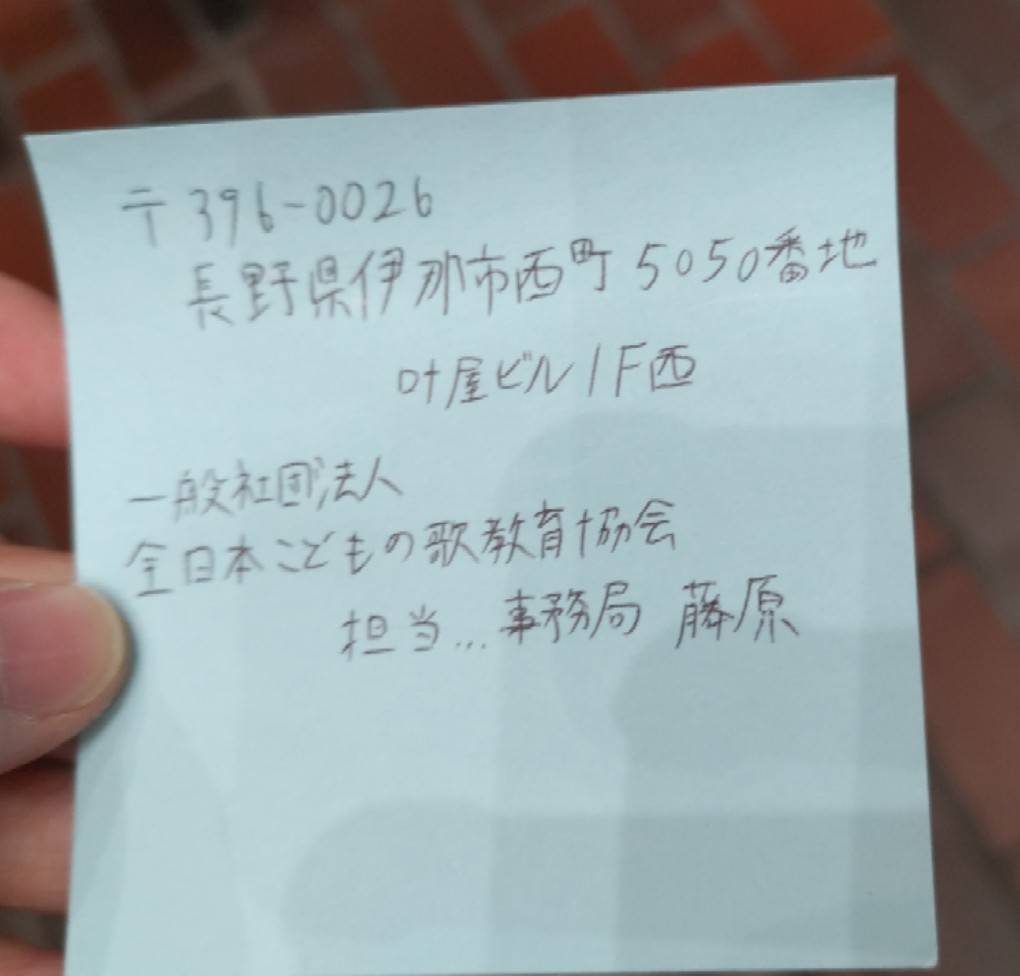 〒396-0026
長野県伊那市西町5050番地
叶屋ビル1F西
一般社団法人
全日本こどもの歌教育協会
担当...事務局 藤原